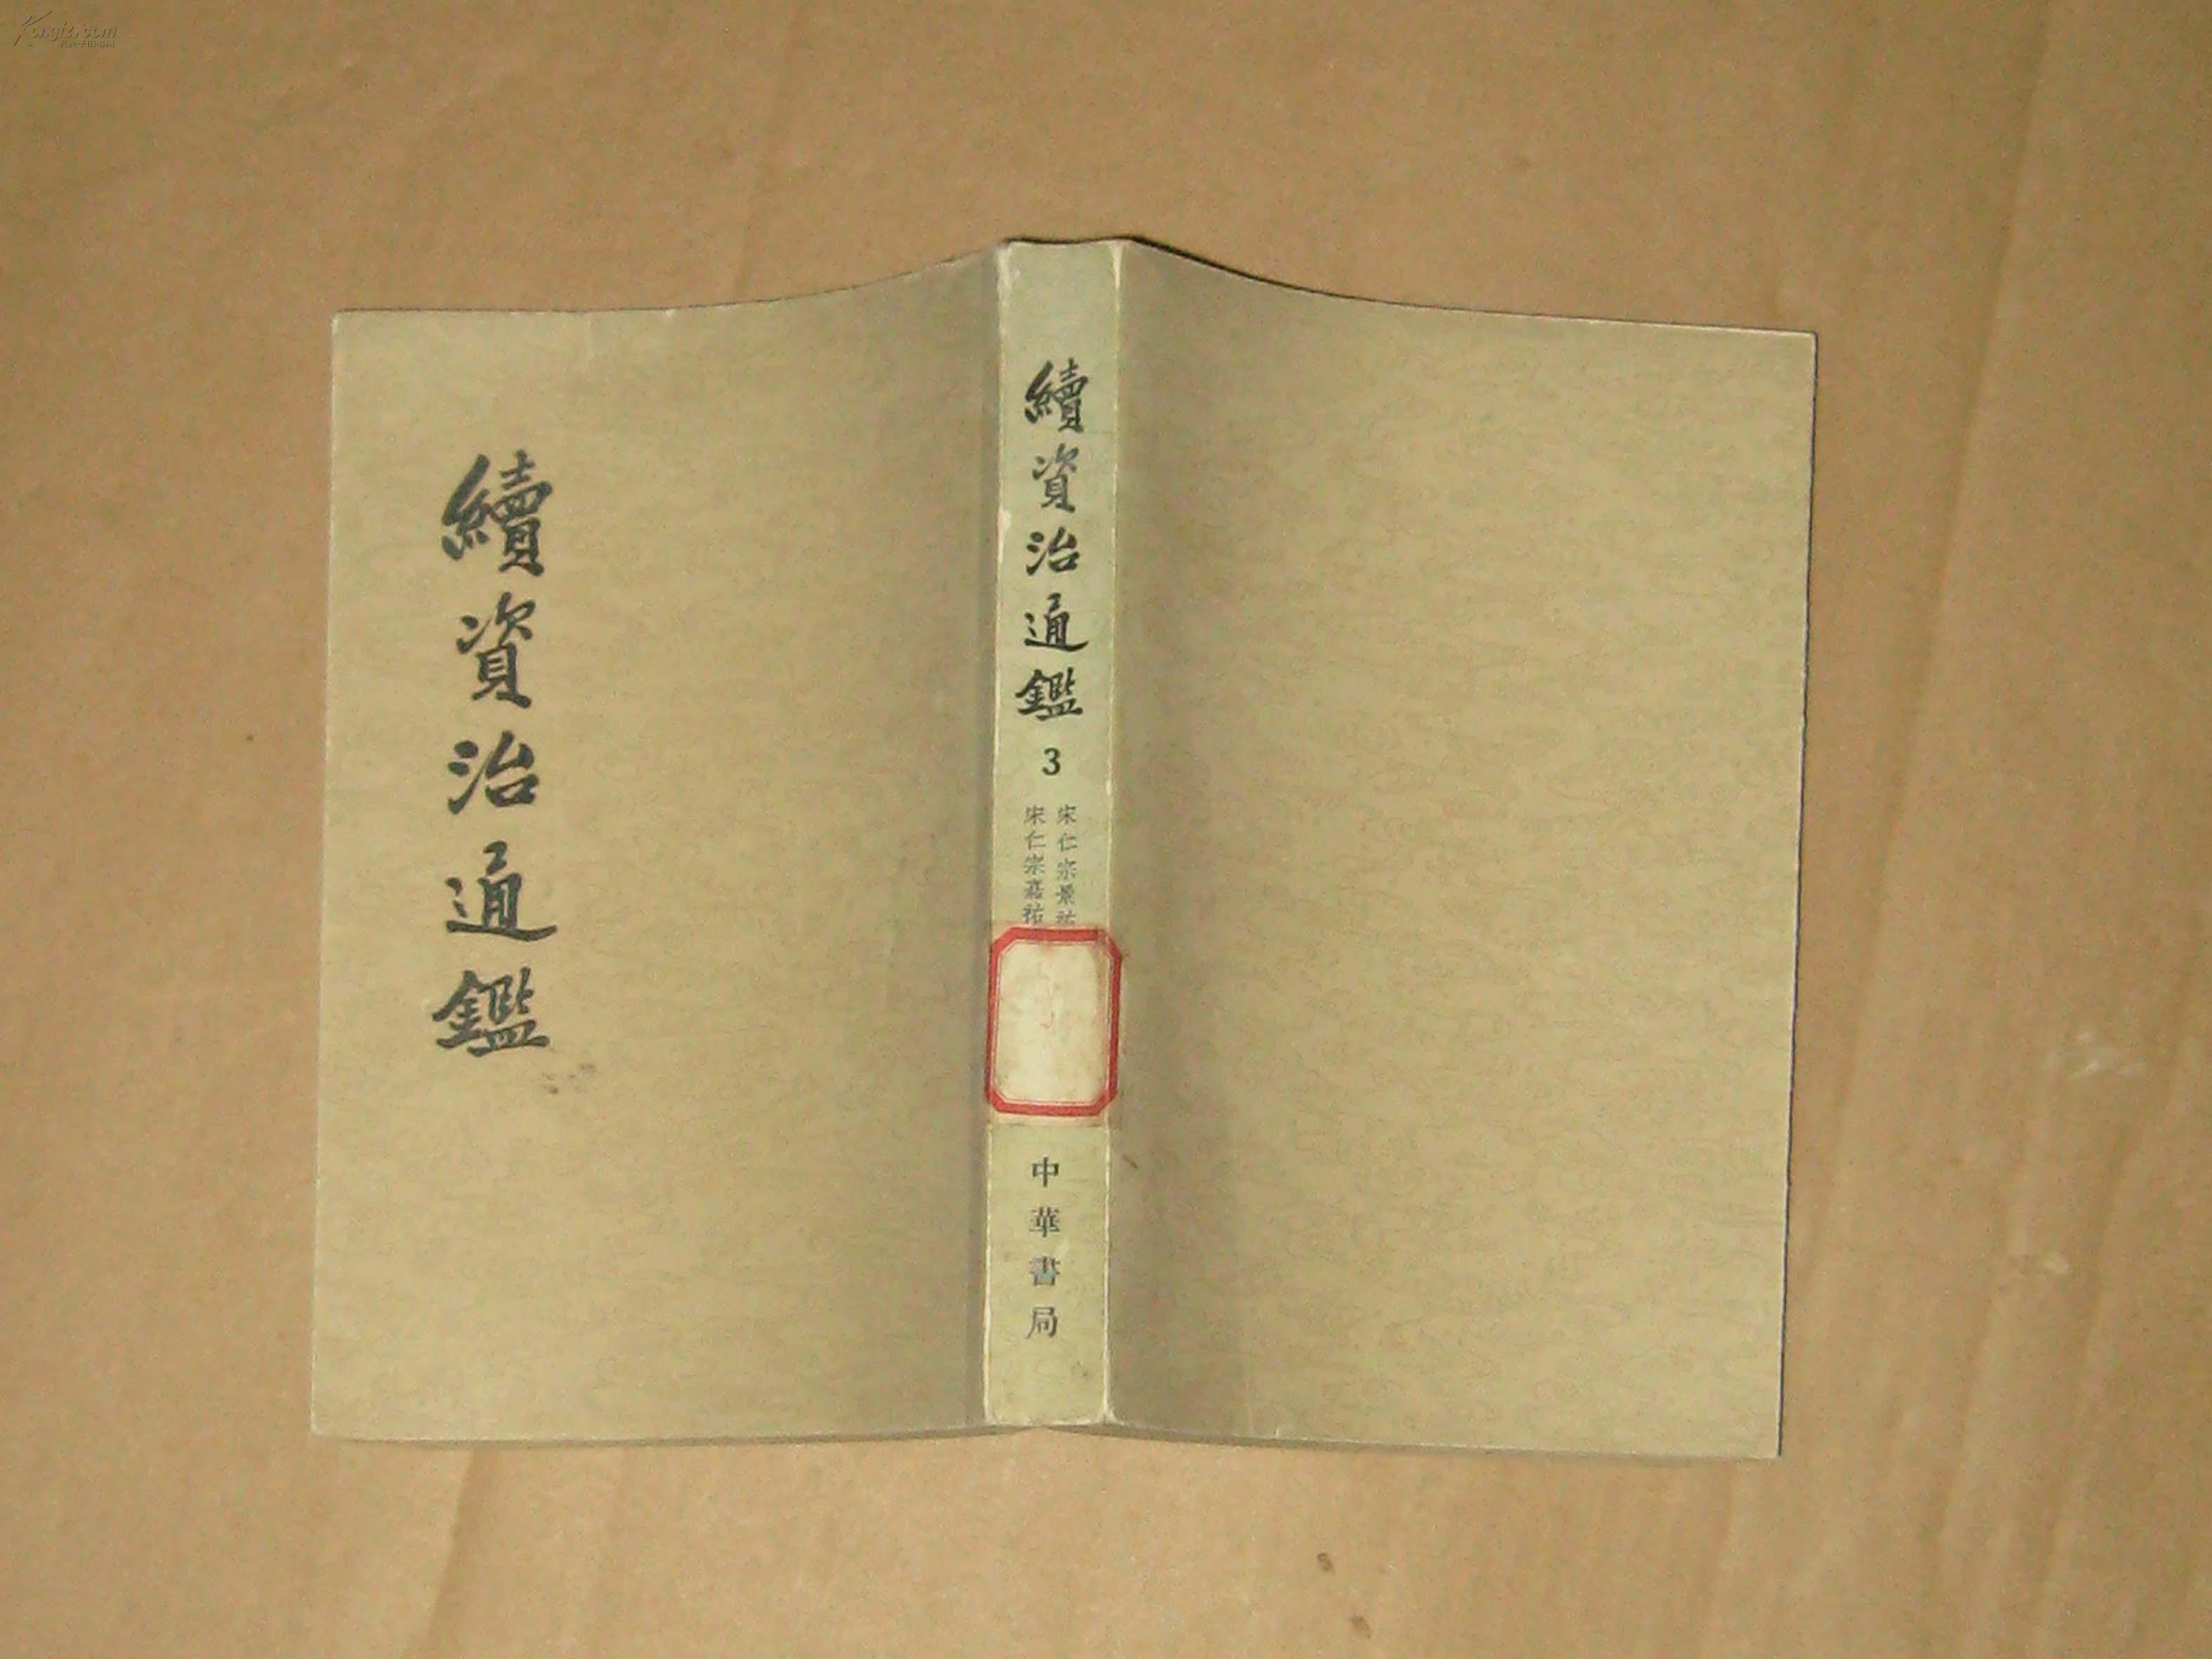 Kongfz.com
續資治通鑑
續資治通鑑
3
宋仁宗景祐
宋仁宗嘉祐
中華書局